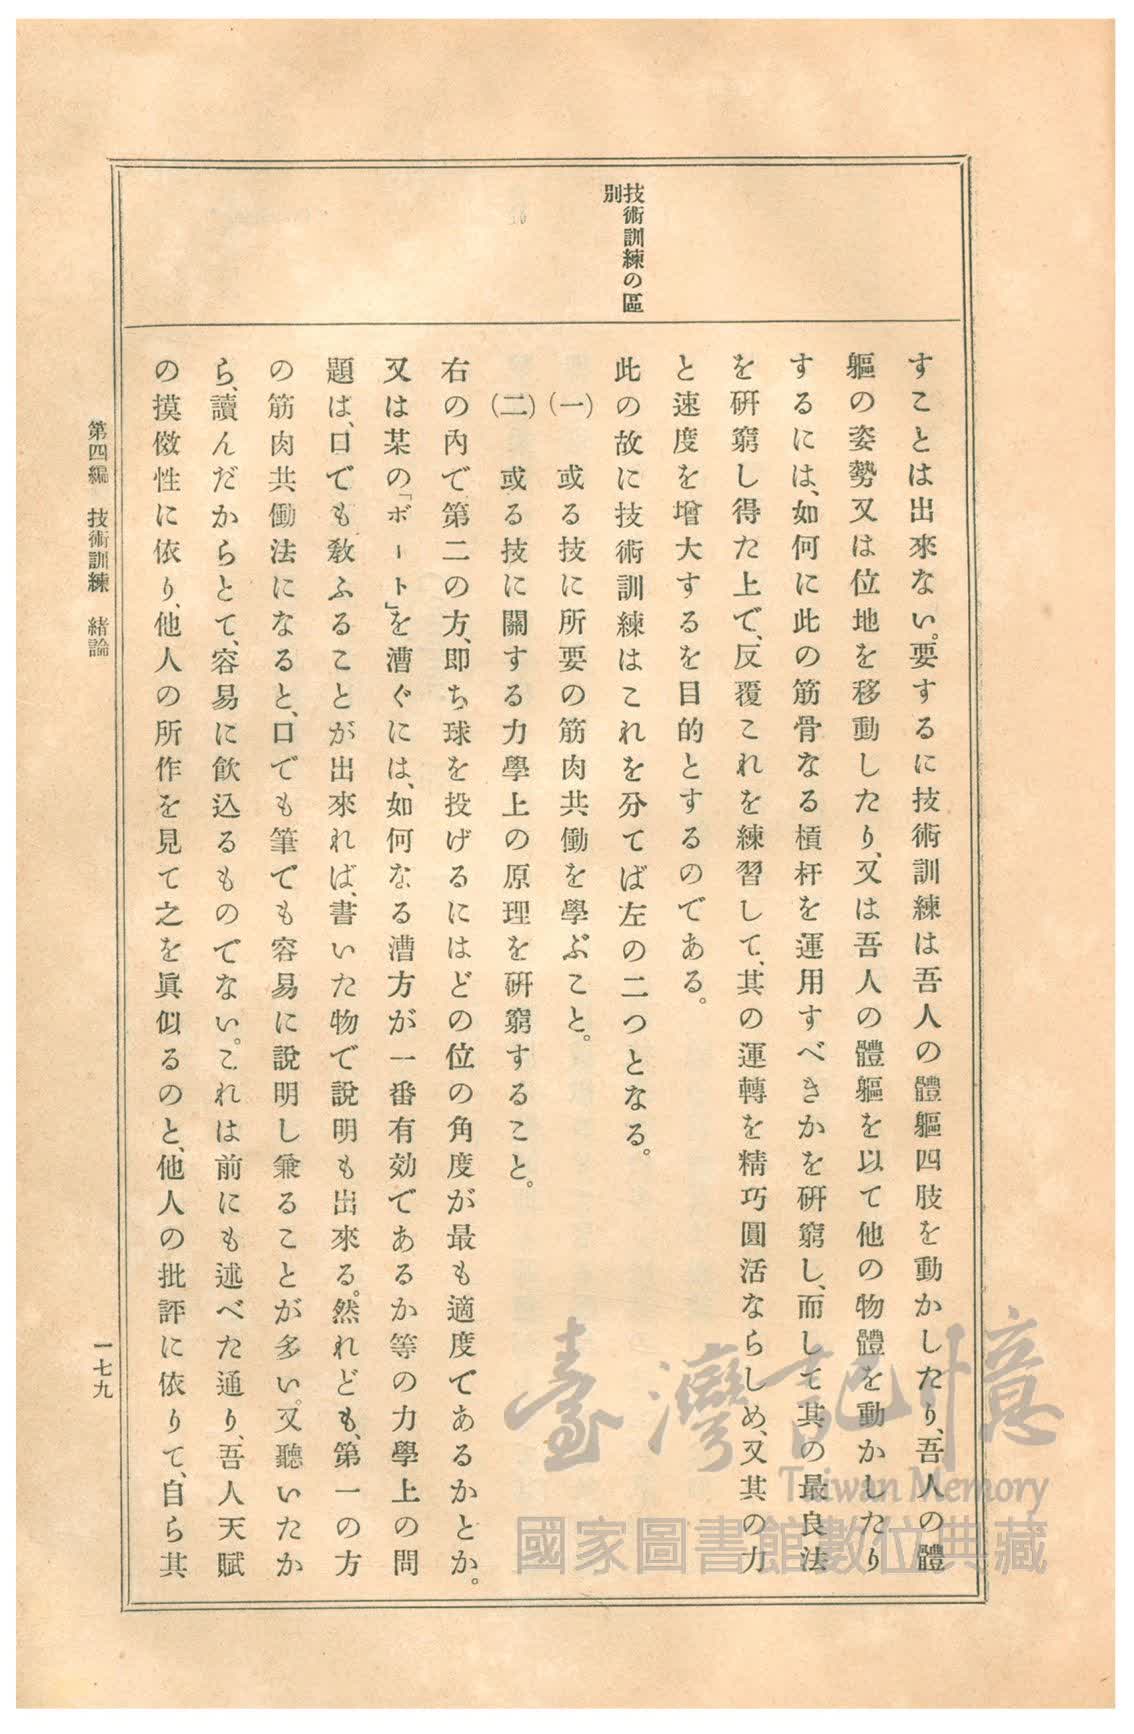 技術訓練の區
別
すことは出來ない。要するに技術訓練は吾人の體軀四肢を動かしたり、吾人の體
軀の姿勢又は位地を移動したり、又は吾人の體軀を以て他の物體を動かしたり
するには、如何に此の筋骨なる槓杆を運用すべきかを硏窮し、而して其の最良法
を硏窮し得た上で、反覆これを練習して、其の運轉を精巧圓活ならしめ、又其の力
と速度を增大するを目的とするのである。
此の故に技術訓練はこれを分てば左の二つとなる。
(一) 或る技に所要の筋肉共働を學ぶこと。
(二) 或る技に關する力學上の原理を硏窮すること。
右の內で第二の方、卽ち球を投げるにはどの位の角度が最も適度であるかとか。
又は某の「ボート」を漕ぐには、如何なる漕方が一番有効であるか等の力學上の問
題は、口でも敎ふることが出來れば、書いた物で說明も出來る。然れども、第一の方
の筋肉共働法になると、口でも筆でも容易に說明し兼ることが多い。又聽いたか
ら、讀んだからとて、容易に飮込るものでない。これは前にも述べた通り、吾人天賦
の摸倣性に依り、他人の所作を見て之を眞似るのと、他人の批評に依りて、自ら其
第四編 技術訓練 緖論
一七九
臺灣記憶
Taiwan Memory
國家圖書館數位典藏